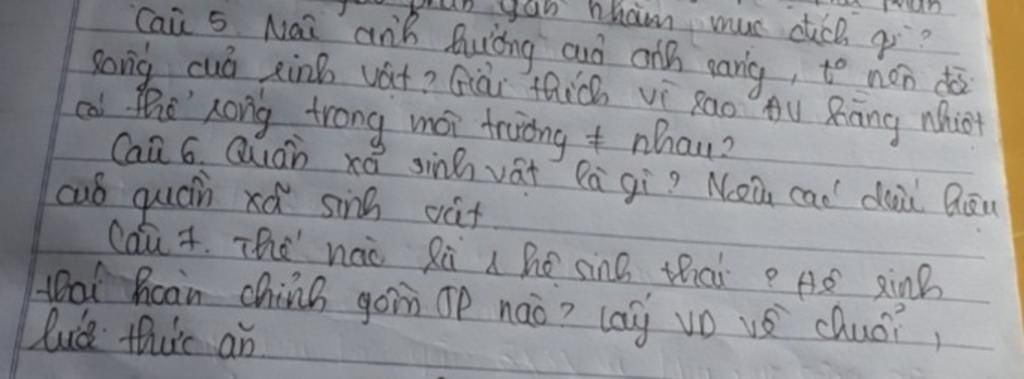 phân gần nhằm mục đích gì?
Câu 5. Nêu ảnh hưởng của ánh sáng, t° nên đời
sống của sinh vật? Giải thích vì sao ĐV hằng nhiệt
có thể sống trong môi trường ≠ nhau?
Câu 6. Quần xã sinh vật là gì? Nêu các dấu hiệu
của quần xã sinh vật
Câu 7. Thế nào là 1 hệ sinh thái? Hệ sinh
thái hoàn chỉnh gồm TP nào? Lấy VD về chuỗi,
lưới thức ăn.